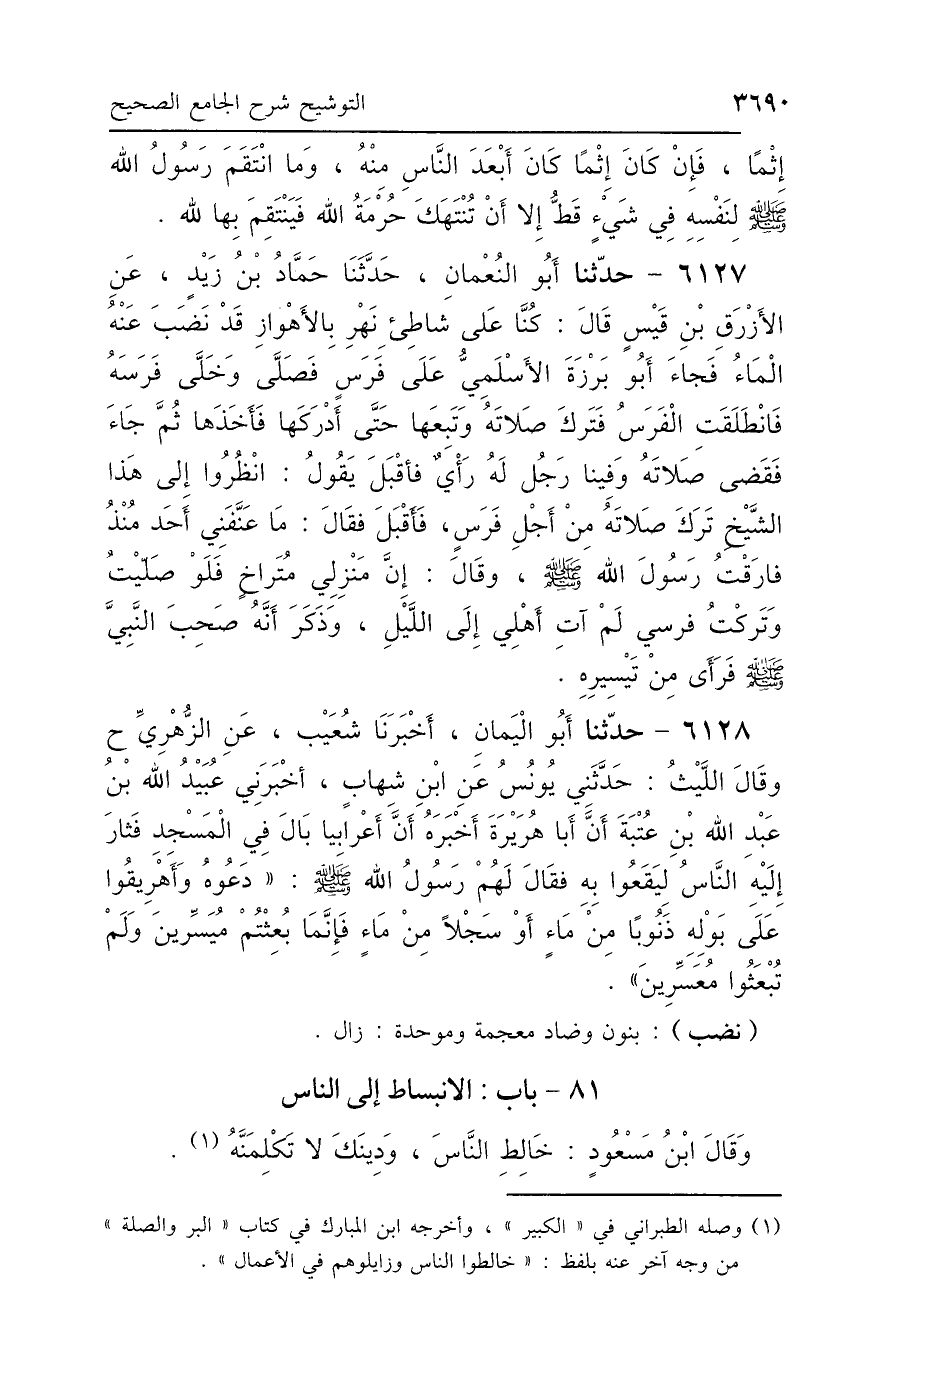 ٣٦٩٠ التوشيح شرح الجامع الصحيح
إِثْمًا ، فَإِنْ كَانَ إِثْمًا كَانَ أَبْعَدَ النَّاسِ مِنْهُ ، وَما انْتَقَمَ رَسُولُ الله
ﷺ لِنَفْسِهِ فِي شَيْءٍ قَطُّ إِلا أَنْ تُنْتَهَكَ حُرْمَةُ الله فَيَنْتَقِمَ بِها لله .
٦١٢٧ – حدّثنا أَبُو النُعْمان ، حَدَّثَنَا حَمَّادُ بْنُ زَيْدٍ ، عَنِ
الأَزْرَقِ بْنِ قَيْسٍ قَالَ : كُنَّا عَلى شاطِئ نَهْرٍ بِالأَهْوازِ قَدْ نَضَبَ عَنْهُ
الْماءُ فَجاءَ أَبُو بَرْزَةَ الأَسْلَمِيُّ عَلَى فَرَسٍ فَصَلَّى وَخَلَّى فَرَسَهُ
فَانْطَلَقَتِ الْفَرَسُ فَتَرَكَ صَلاتَهُ وَتَبِعَها حَتَّى أَدْرَكَها فَأَخَذَها ثُمَّ جَاءَ
فَقَضى صَلاتَهُ وَفِينا رَجُل لَهُ رَأْيٌ فأقْبَلَ يَقُولُ : انْظُرُوا إِلى هَذا
الشَّيْخِ تَرَكَ صَلاتَهُ مِنْ أَجْلِ فَرَسٍ، فَأَقْبَلَ فقَالَ : مَا عَنَّفَنِي أَحَد مُنْذُ
فارَقْتُ رَسُولَ الله ﷺ ، وقَالَ : إِنَّ مَنْزِلِي مُتَراخٍ فَلَوْ صَلّيْتُ
وَتَرَكْتُ فرسي لَمْ آتِ أَهْلِي إِلَى اللَّيْلِ ، وَذَكَرَ أَنَّهُ صَحِبَ النَّبِيَّ
ﷺ فَرَأَى مِنْ تَيْسِيرِهِ .
٦١٢٨ – حدّثنا أَبُو الْيَمان ، أَخْبَرَنَا شُعَيْب ، عَنِ الزُّهْرِيِّ ح
وقَالَ اللَّيْثُ : حَدَّثَنِي يُونُسُ عَنِ ابْنِ شهابٍ ، أخْبَرَنِي عُبَيْدُ الله بْنُ
عَبْدِ الله بْنِ عُتْبَةَ أَنَّ أَبا هُرَيْرَةَ أَخْبَرَهُ أَنَّ أَعْرابِيا بَالَ فِي الْمَسْجِدِ فَثارَ
إِلَيْهِ النَّاسُ لِيَقَعُوا بِهِ فقَالَ لَهُمْ رَسُولُ الله ﷺ : « دَعُوهُ وَأَهْرِيقُوا
عَلَى بَوْلِهِ ذَنُوبًا مِنْ مَاءٍ أَوْ سَجْلاً مِنْ مَاءٍ فَإِنَّمَا بُعِثْتُمْ مُيَسِّرِينَ وَلَمْ
تُبْعَثُوا مُعَسِّرِينَ» .
( نضب ) : بنون وضاد معجمة وموحدة : زال .
٨١ – باب : الانبساط إلى الناس
وَقَالَ ابْنُ مَسْعُودٍ : خَالِطِ النَّاسَ ، وَدِينَكَ لا تَكْلِمَنَّهُ (١) .
(١) وصله الطبراني في « الكبير » ، وأخرجه ابن المبارك في كتاب « البر والصلة »
من وجه آخر عنه بلفظ : « خالطوا الناس وزايلوهم في الأعمال » .